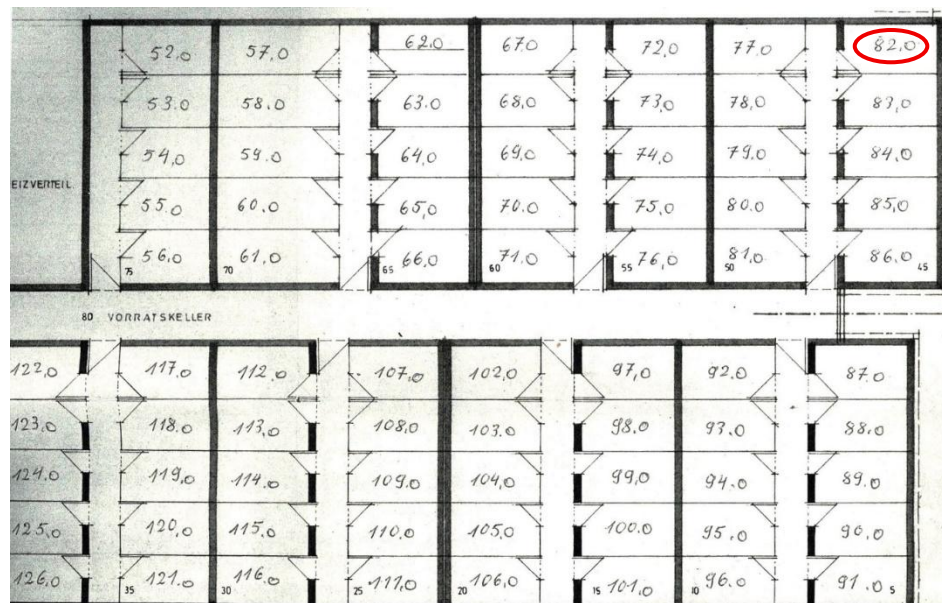 52.0 57,0 62.0 67.0 72,0 77.0 82,0
53.0 58.0 63.0 68,0 73,0 78,0 83,0
54,0 59.0 64,0 69,0 74,0 79.0 84,0
EIZVERTEIL.
55.0 60.0 65,0 70.0 75,0 80.0 85,0
56,0 61,0 66,0 71.0 76,0 81,0 86,0
75 70 65 60 55 50 45
80 VORRATSKELLER
122,0 117.0 112,0 107.0 102,0 97,0 92.0 87.0
123,0 118.0 113,0 108,0 103.0 98.0 93.0 88.0
124.0 119,0 114.0 109.0 104,0 99,0 94.0 89.0
125,0 120,0 115.0 110.0 105.0 100.0 95.0 90,0
126,0 121.0 116.0 111.0 106,0 101,0 96.0 91.0
35 30 25 20 15 10 5